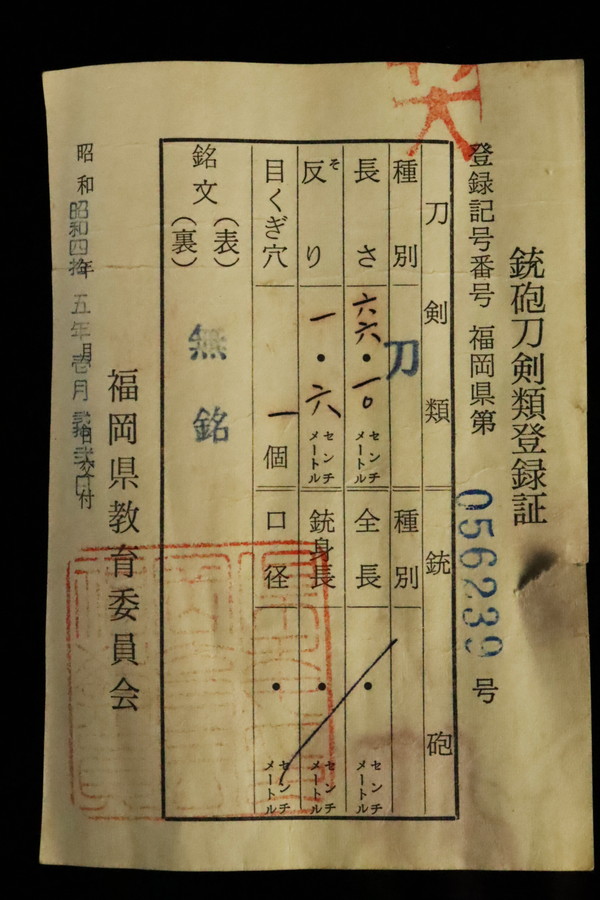 銃砲刀剣類登録証
登録記号番号 福岡県第 056239 号
刀剣類
銃砲
種別 刀
種別
長さ 六六・一〇 センチメートル
全長 ・ センチメートル
反り そ 一・六 センチメートル
銃身長 ・ センチメートル
目くぎ穴 一個
口径 ・ センチメートル
銘文 (表) 無銘
(裏)
福岡県教育委員会
昭和 昭和四拾五年 壱月 交付